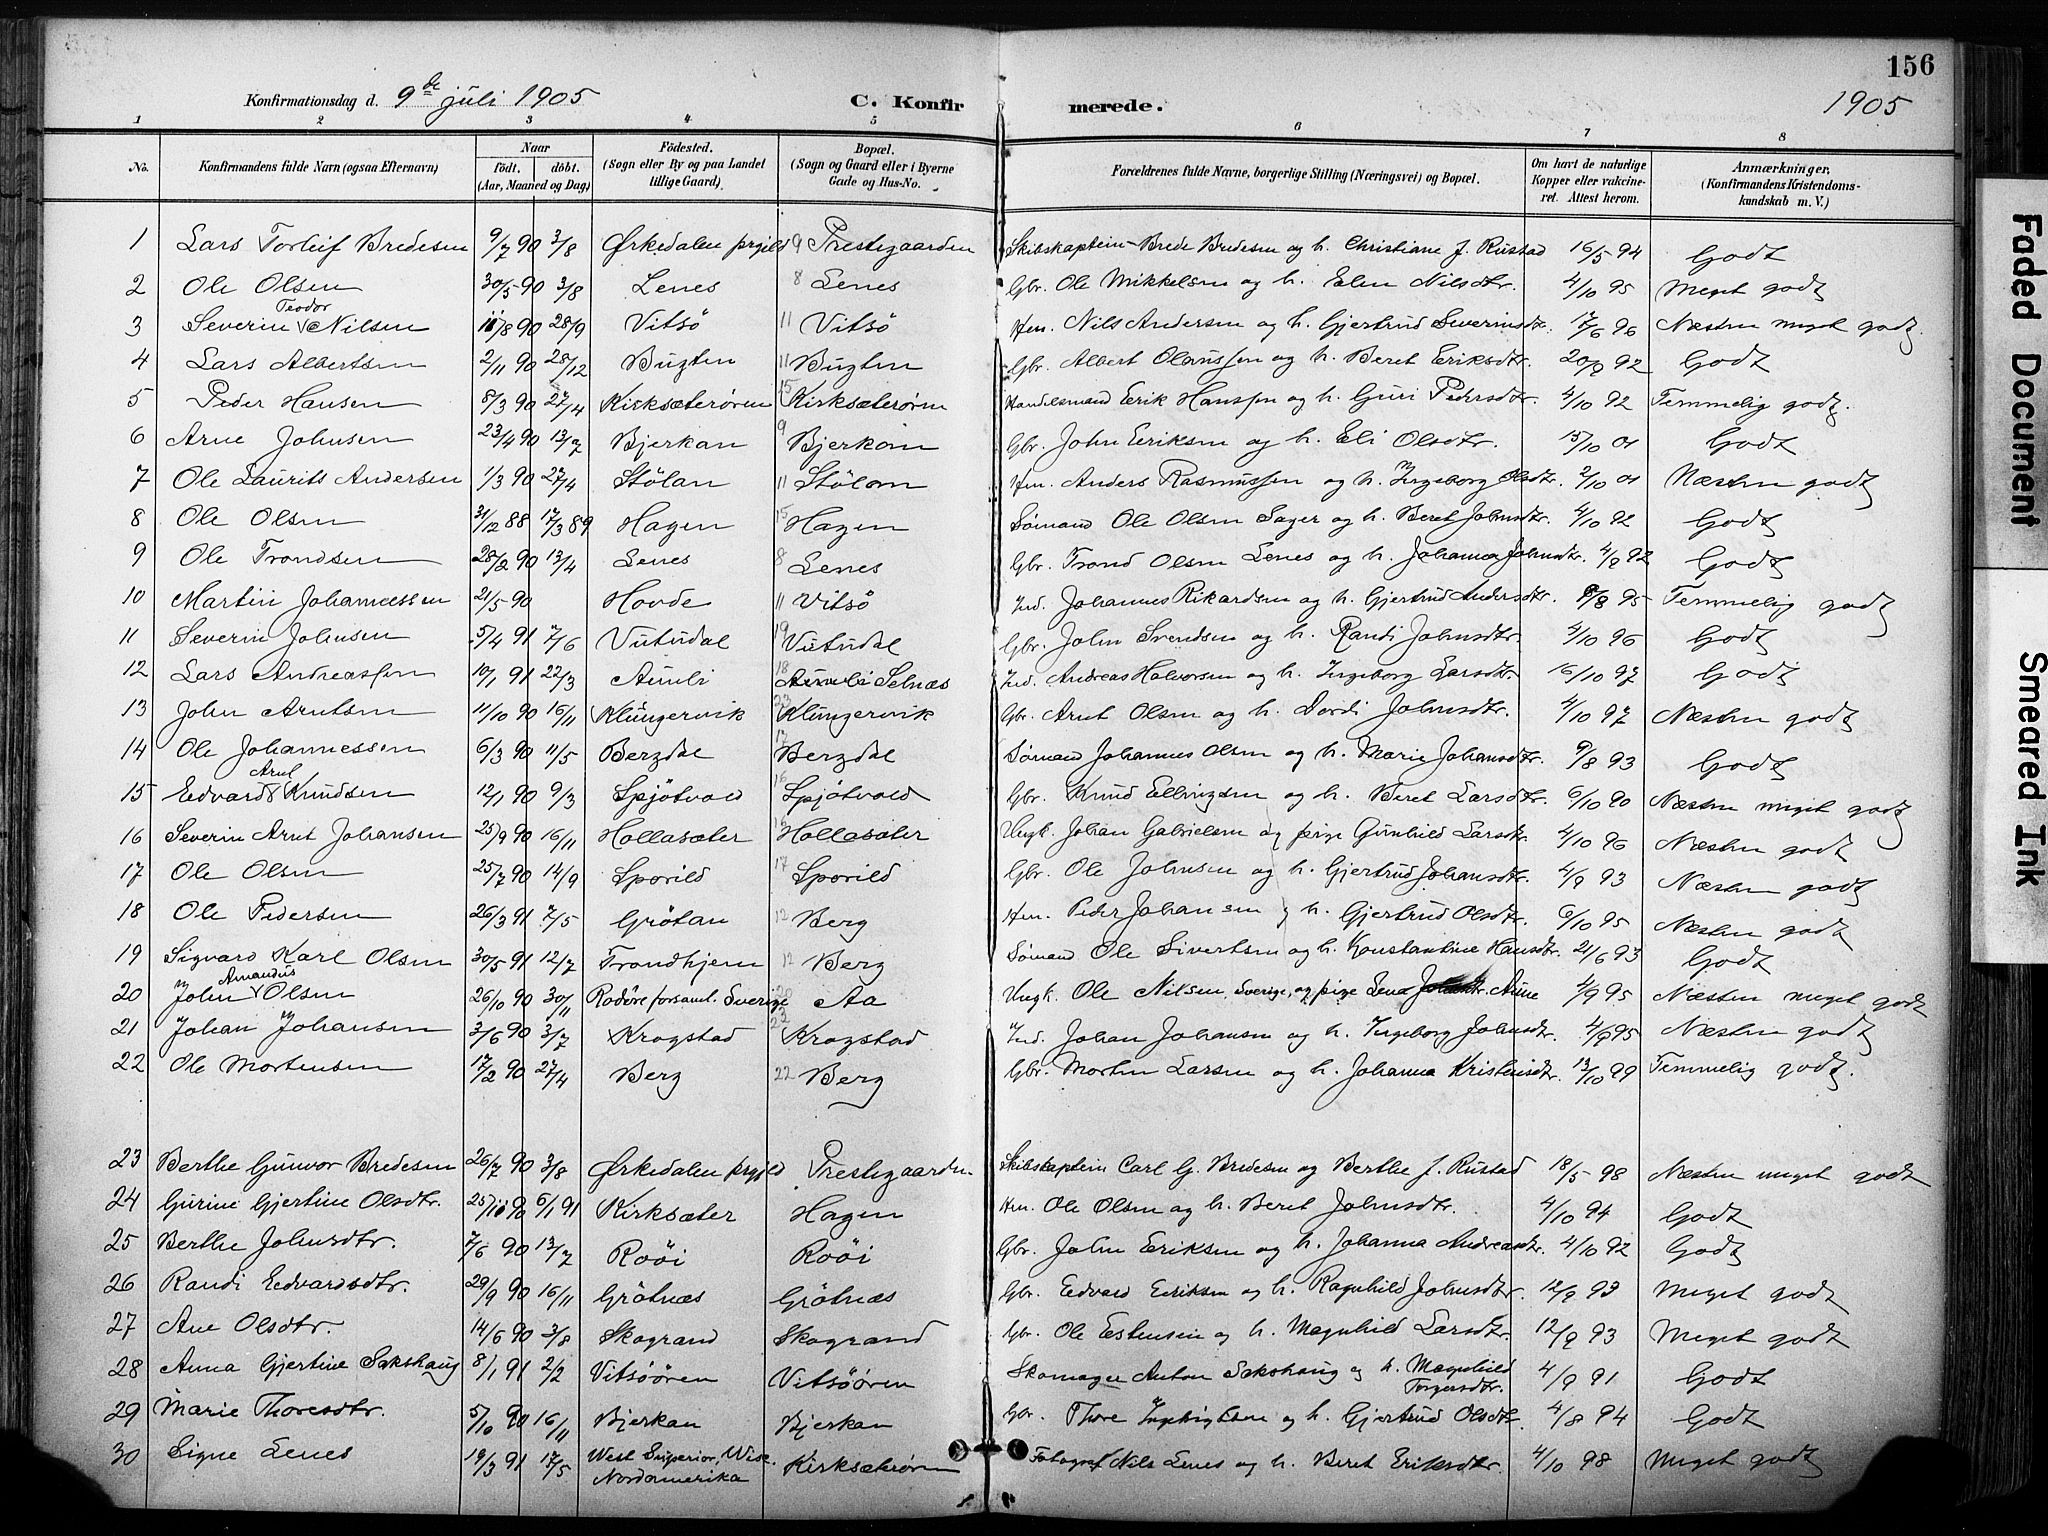 156
Konfirmationsdag d. 9de juli 1905 C. Konfirmerede. 1905
1 2 3 4 5 6 7 8
No. Konfirmandens fulde Navn (ogsaa Efternavn) Naar Födt. döbt. (Aar, Maaned og Dag) Födested. (Sogn eller By og paa Landet tillige Gaard) Bopæl. (Sogn og Gaard eller i Byerne Gade og Hus-No. Forældrenes fulde Navne, borgerlige Stilling (Næringsvei) og Bopæl. Om havt de naturlige Kopper eller vakcineret. Attest herom. Anmærkninger. (Konfirmandens Kristendomskundskab m. V.)
1 Lars Torleif Bredesen 9/7 90 3/8 Ørkedalen prgjld 9 Prestegaarden Skibskaptein Brede Bredesen og h. Christiane J. Rustad 16/5 94 Godt
2 Ole Olsen 30/5 90 3/8 Lenes 8 Lenes Gbr. Ole Mikkelsen og h. Elen Nilsdtr. 4/10 95 Meget godt
3 Severin Teodor Nilsen 11/8 90 28/9 Vitsö 11 Vitsö Hm. Nils Andersen og h. Gjertrud Severinsdtr. 17/6 96 Næsten meget godt.
4 Lars Albertsen 2/11 90 28/12 Bugten 11 Bugten Gbr. Albert Olaussen og h. Beret Eriksdtr. 20/9 92 Godt
5 Peder Hansen 8/3 90 27/4 Kirksæterøren 15 Kirksæterøren Handelsmand Erik Hanssen og h. Guri Pedersdtr. 4/10 92 Temmelig godt.
6 Arne Johnsen 23/4 90 13/7 Bjerkan 9 Bjerkan Gbr. John Eriksen og h. Eli Olsdtr. 15/10 01 Godt
7 Ole Laurits Andersen 1/3 90 27/4 Stölan 11 Stölan Hm. Anders Rasmussen og h. Ingeborg Olsdtr. 2/10 01 Næsten godt
8 Ole Olsen 31/12 88 17/3 89 Hagen 15 Hagen Sömand Ole Olsen Sager og h. Beret Johnsdtr. 4/10 92 Godt
9 Ole Trondsen 28/2 90 13/4 Lenes 8 Lenes Gbr. Trond Olsen Lenes og h. Johanna Johnsdtr. 4/9 92 Godt
10 Martin Johannessen 21/5 90 Hovde 11 Vitsö Ind. Johannes Rikardsen og h. Gjertrud Andersdtr. 8/8 95 Temmelig godt
11 Severin Johnsen 5/4 91 7/6 Vutudal 19 Vutudal Gbr. John Svendsen og h. Randi Johnsdtr. 4/10 96 Godt
12 Lars Andreassen 10/1 91 22/3 Aunli 18 Aunli Selnæs Ind. Andreas Halvorsen og h. Ingeborg Larsdtr. 16/10 97 Godt
13 John Arntsen 11/10 90 16/11 Klungervik 23 Klungervik Gbr. Arnt Olsen og h. Dordi Johnsdtr. 4/10 97 Næsten godt
14 Ole Johannessen 6/3 90 11/5 Bergdal 17 Bergdal Sömand Johannes Olsen og h. Marie Johansdtr. 9/8 93 Godt
15 Edvard Arnt Knudsen 12/1 90 9/3 Spjötvold 16 Spjötvold Gbr. Knud Ellingsen og h. Beret Larsdtr. 6/10 90 Næsten meget godt
16 Severin Arnt Johansen 25/9 90 16/11 Hollasæter 13 Hollasæter Ungk. Johan Gabrielsen og pige Gunhild Larsdtr. 4/10 96 Næsten godt
17 Ole Olsen 25/7 90 14/9 Sporild 17 Sporild Gbr. Ole Johnsen og h. Gjertrud Johansdtr. 4/9 93 Næsten godt
18 Ole Pedersen 26/3 91 7/5 Grötan 12 Berg Hm. Peder Johansen og h. Gjertrud Olsdtr. 6/10 95 Næsten godt
19 Sigvard Karl Olsen 30/5 91 12/7 Trondhjem 12 Berg Sömand Ole Sivertsen og h. Konstantine Hansdtr. 21/6 93 Godt
20 John Amandus Olsen 26/10 90 30/11 Rodöre forsaml. Sverige 20 Aa Ungk. Ole Nilsen, Sverige, og pige Lena Aune 4/9 95 Næsten meget godt
21 Johan Johansen 3/6 90 3/7 Krogstad 23 Krogstad Ind. Johan Johansen og h. Ingeborg Johnsdtr. 4/9 95 Næsten godt
22 Ole Mortensen 17/2 90 27/4 Berg 22 Berg Gbr. Morten Larsen og h. Johanna Kristensdtr. 13/10 99 Temmelig godt.
23 Berthe Gunvor Bredesen 26/7 90 3/8 Ørkedalen prgjld Prestegaarden Skibskaptein Carl G. Bredesen og Berthe J. Rustad 18/5 98 Næsten meget godt
24 Gurine Gjertine Olsdtr. 25/10 90 6/1 91 Kirksæter Hagen Hm. Ole Olsen og h. Beret Johnsdtr. 4/10 94 Godt
25 Berthe Johnsdtr. 7/6 90 13/7 Roöi Roöi Gbr. John Eriksen og h. Johanna Andreasdtr. 4/10 92 Godt
26 Randi Edvardsdtr. 29/9 90 16/11 Grötnæs Grötnæs Gbr. Edvard Eriksen og h. Ragnhild Johnsdtr. 12/9 93 Meget godt
27 Ane Olsdtr. 14/6 90 3/8 Skogrand Skogrand Gbr. Ole Estensen og h. Magnhild Larsdtr. 12/9 93 Meget godt
28 Anna Gjertine Sakshaug 8/1 91 2/2 Vitsöören Vitsöören Skomager Anton Sakshaug og h. Magnhild Torgersdtr. 4/9 91 Godt
29 Marie Thoresdtr. 5/10 90 16/11 Bjerkan Bjerkan Gbr. Thore Ingebrigtsen og h. Gjertrud Olsdtr. 4/8 94 Godt
30 Signe Lenes 19/3 91 17/5 West Superior, Wisc. Nordamerika Kirksæterøren Fotograf Nils Lenes og h. Beret Eriksdtr. 4/10 98 Meget godt
Faded Document
Smeared Ink